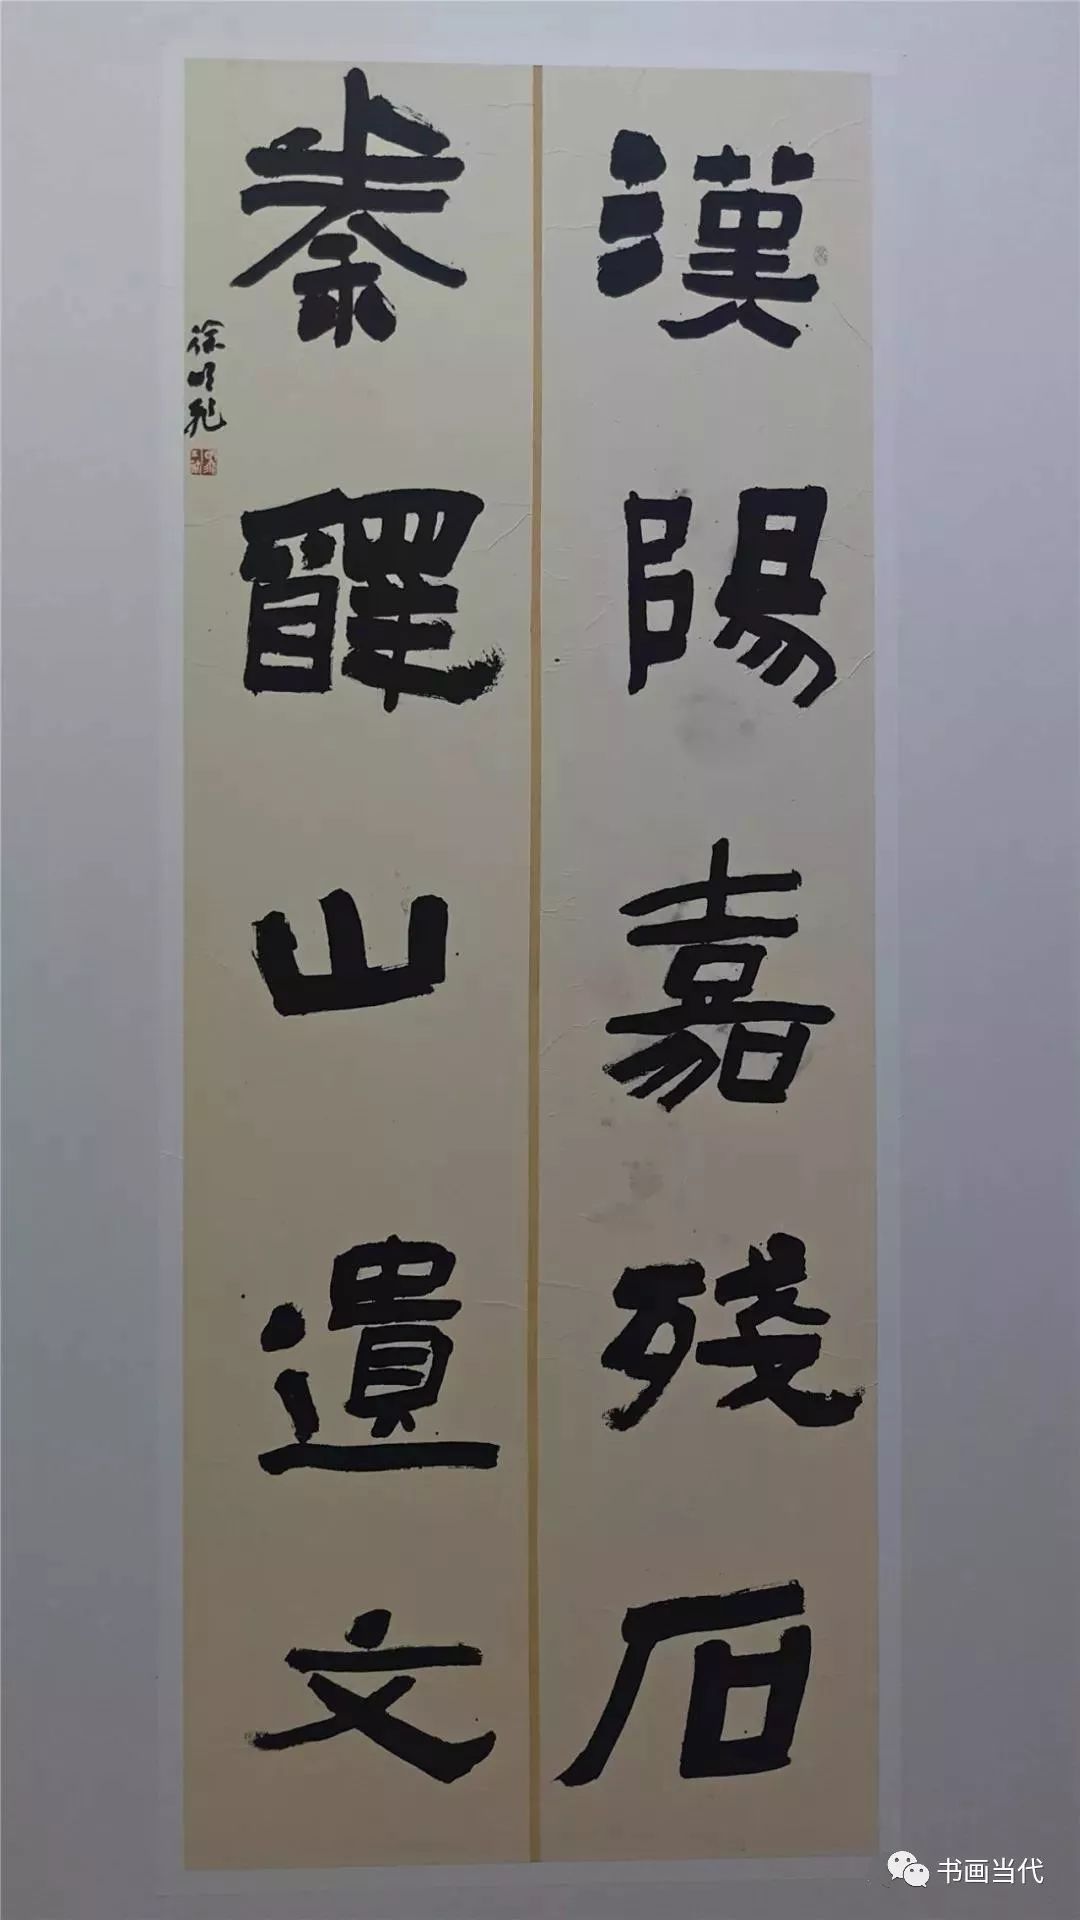 漢陽嘉殘石
秦嶧山遺文
书画当代